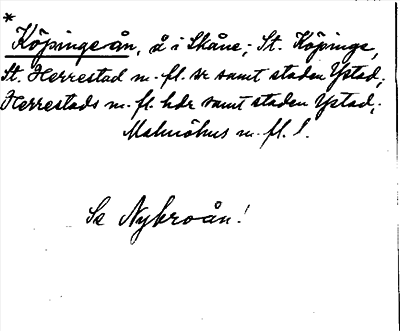 *
Köpingeån, å i Skåne; St. Köpinge,
St. Herrestad m. fl. sr samt staden Ystad;
Herrestads m. fl. hdr samt staden Ystad;
Malmöhus m. fl. l.
Se Nybroån!